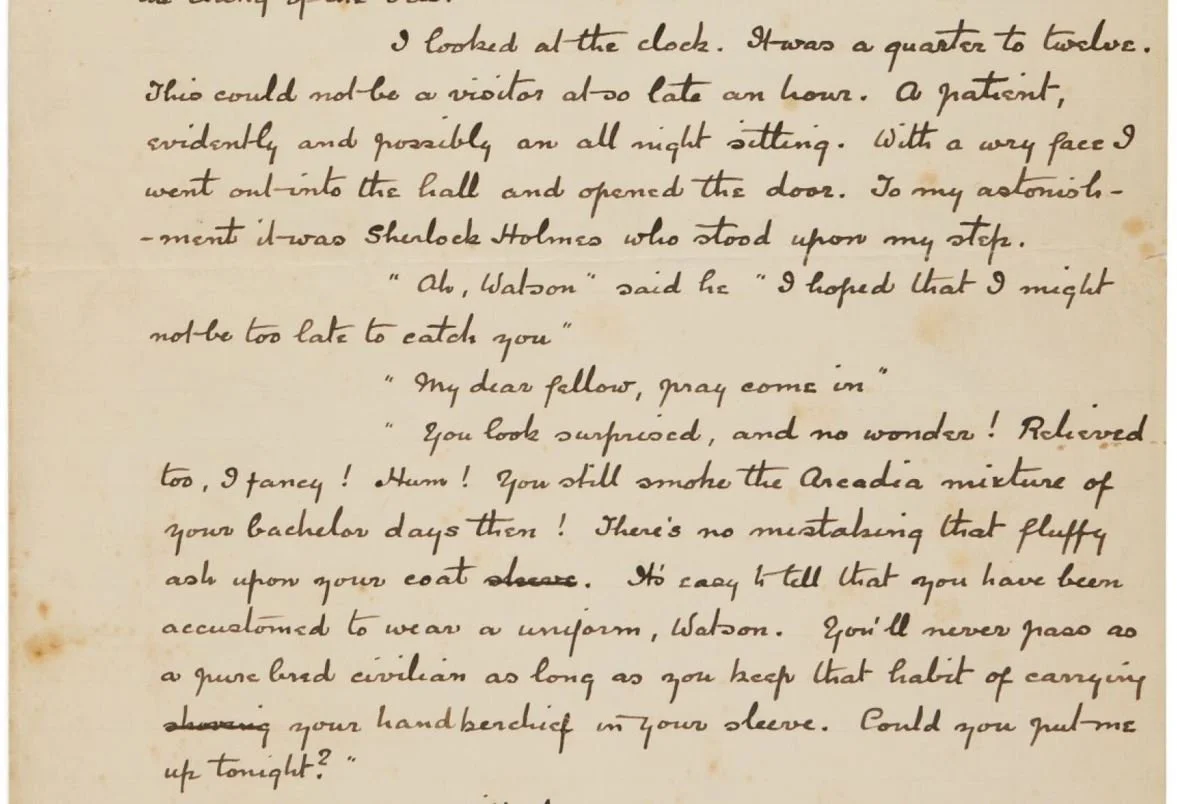 I looked at the clock. It was a quarter to twelve.
This could not be a visitor at so late an hour. A patient,
evidently and possibly an all night sitting. With a wry face I
went out into the hall and opened the door. To my astonish-
-ment it was Sherlock Holmes who stood upon my step.
" Ah, Watson " said he " I hoped that I might
not be too late to catch you "
" My dear fellow, pray come in "
" You look surprised, and no wonder ! Relieved
too, I fancy ! Hum ! You still smoke the Arcadia mixture of
your bachelor days then ! There's no mistaking that fluffy
ash upon your coat sleeve. It's easy to tell that you have been
accustomed to wear a uniform, Watson. You'll never pass as
a pure bred civilian as long as you keep that habit of carrying
shoving your handkerchief in your sleeve. Could you put me
up tonight? "